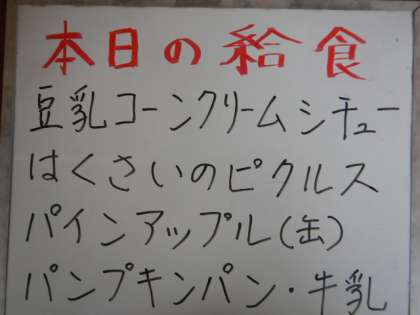 本日の給食
豆乳コーンクリームシチュー
はくさいのピクルス
パインアップル(缶)
パンプキンパン・牛乳